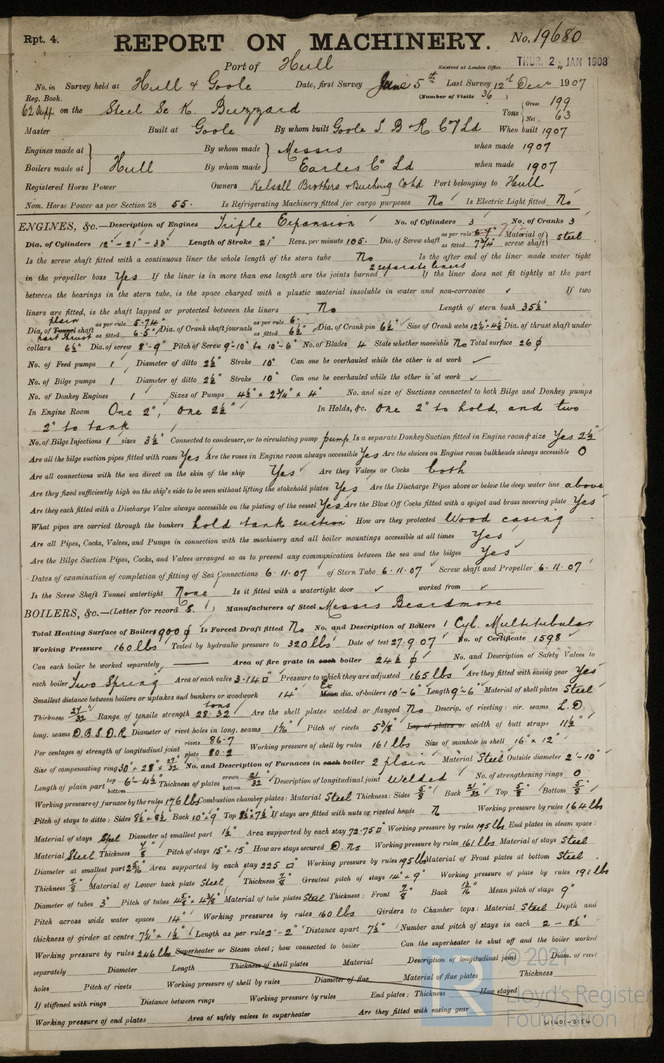 Rpt. 4.
REPORT ON MACHINERY. No. 19680
Port of Hull
Received at London Office THUR. 2 JAN 1908
No. in Survey held at Hull & Goole Date, first Survey June 5th Last Survey 12th Decr 1907
Reg. Book. (Number of Visits 36)
62 Supt. on the Steel Sc K. Buzzard Tons Gross 199 Net 63
Master Built at Goole By whom built Goole S. B & R. Coy Ld When built 1907
Engines made at Hull By whom made Messrs Earles Co Ld when made 1907
Boilers made at By whom made when made 1907
Registered Horse Power Owners Kelsall Brothers & Beeching Co Ld Port belonging to Hull
Nom. Horse Power as per Section 28 55. Is Refrigerating Machinery fitted for cargo purposes No Is Electric Light fitted No
ENGINES, &c.—Description of Engines Triple Expansion No. of Cylinders 3 No. of Cranks 3
Dia. of Cylinders 12"-21"-33" Length of Stroke 21" Revs. per minute 105. Dia. of Screw shaft as per rule as fitted 7 3/4" Material of screw shaft steel
Is the screw shaft fitted with a continuous liner the whole length of the stern tube No 2 separate liners Is the after end of the liner made water tight
in the propeller boss Yes If the liner is in more than one length are the joints burned If the liner does not fit tightly at the part
between the bearings in the stern tube, is the space charged with a plastic material insoluble in water and non-corrosive ✓ If two
liners are fitted, is the shaft lapped or protected between the liners No Length of stern bush 35 1/2"
Dia. of Tunnel shaft as per rule 5.74" as fitted 6.5" Dia. of Crank shaft journals as per rule 6. as fitted 6 1/2" Dia. of Crank pin 6 1/2" Size of Crank webs 12 1/2 x 4 1/4 Dia. of thrust shaft under
collars 6 1/2" Dia. of screw 8'-9" Pitch of Screw 9'-10" to 10'-6" No. of Blades 4 State whether moveable No Total surface 26 ▯
No. of Feed pumps 1 Diameter of ditto 2 1/2" Stroke 10" Can one be overhauled while the other is at work ✓
No. of Bilge pumps 1 Diameter of ditto 2 1/2" Stroke 10" Can one be overhauled while the other is at work ✓
No. of Donkey Engines 1 Sizes of Pumps 4 1/2" x 2 3/4" x 4" No. and size of Suctions connected to both Bilge and Donkey pumps
In Engine Room One 2", One 2 1/2" In Holds, &c. One 2" to hold, and two
2" to tank
No. of Bilge Injections 1 sizes 3 1/2" Connected to condenser, or to circulating pump pump Is a separate Donkey Suction fitted in Engine room & size Yes 2 1/2
Are all the bilge suction pipes fitted with roses Yes Are the roses in Engine room always accessible Yes Are the sluices on Engine room bulkheads always accessible 0
Are all connections with the sea direct on the skin of the ship Yes Are they Valves or Cocks both
Are they fixed sufficiently high on the ship's side to be seen without lifting the stokehold plates Yes Are the Discharge Pipes above or below the deep water line above
Are they each fitted with a Discharge Valve always accessible on the plating of the vessel Yes Are the Blow Off Cocks fitted with a spigot and brass covering plate Yes
What pipes are carried through the bunkers hold tank suction How are they protected Wood casing
Are all Pipes, Cocks, Valves, and Pumps in connection with the machinery and all boiler mountings accessible at all times Yes
Are the Bilge Suction Pipes, Cocks, and Valves arranged so as to prevent any communication between the sea and the bilges Yes
Dates of examination of completion of fitting of Sea Connections 6.11.07 of Stern Tube 6.11.07 Screw shaft and Propeller 6.11.07
Is the Screw Shaft Tunnel watertight None Is it fitted with a watertight door ✓ worked from ✓
BOILERS, &c.—(Letter for record S.) Manufacturers of Steel Messrs Beardmore
Total Heating Surface of Boilers 900 ▯ Is Forced Draft fitted No No. and Description of Boilers 1 Cyl. Multitubular
Working Pressure 160 lbs Tested by hydraulic pressure to 320 lbs Date of test 27.9.07 No. of Certificate 1598
Can each boiler be worked separately Area of fire grate in each boiler 24 1/2 ▯ No. and Description of Safety Valves to
each boiler Two Spring Area of each valve 3.140" Pressure to which they are adjusted 165 lbs Are they fitted with easing gear Yes
Smallest distance between boilers or uptakes and bunkers or woodwork 14" Ex Mean dia. of boilers 10'-6" Length 9'-6 Material of shell plates Steel
Thickness 27/32 Range of tensile strength 28.32 tons Are the shell plates welded or flanged No Descrip. of riveting: cir. seams L.D.
long. seams D.B.S.D.R. Diameter of rivet holes in long. seams Pitch of rivets 5 3/8" Lap of plates or width of butt straps 11 1/2"
Per centages of strength of longitudinal joint rivets 86.7 plate 80.2 Working pressure of shell by rules 161 lbs Size of manhole in shell 16" x 12"
Size of compensating ring 30" x 28" x 27/32 No. and Description of Furnaces in each boiler 2 plain Material Steel Outside diameter 2'-10"
Length of plain part top 6'-4 1/2" bottom Thickness of plates crown bottom 21/32 Description of longitudinal joint Welded No. of strengthening rings 0
Working pressure of furnace by the rules 176 lbs Combustion chamber plates: Material Steel Thickness: Sides 5/8 Back 21/32 Top 5/8 Bottom 5/8
Pitch of stays to ditto: Sides 8 1/2 x 8 1/2 Back 10" x 9 Top If stays are fitted with nuts or riveted heads N Working pressure by rules 164 lbs
Material of stays Steel Diameter at smallest part 1 1/2" Area supported by each stay 72.75 ▯ Working pressure by rules 195 lbs End plates in steam space:
Material Steel Thickness 7/8 Pitch of stays 15" x 15" How are stays secured D. No Working pressure by rules 161 lbs Material of stays Steel
Diameter at smallest part Area supported by each stay 225 □ Working pressure by rules 195 lbs Material of Front plates at bottom Steel
Thickness 7/8 Material of Lower back plate Steel Thickness 7/8 Greatest pitch of stays 14" x 9" Working pressure of plate by rules 191 lbs
Diameter of tubes 3" Pitch of tubes Material of tube plates Steel Thickness: Front 7/8 Back 13/16 Mean pitch of stays 9"
Pitch across wide water spaces 14" Working pressures by rules 160 lbs Girders to Chamber tops: Material Steel Depth and
thickness of girder at centre 7 1/4" x 1 1/2" Length as per rule 2'-2" Distance apart 7 1/2" Number and pitch of stays in each 2 - 8 1/2"
Working pressure by rules 246 lbs Superheater or Steam chest; how connected to boiler Can the superheater be shut off and the boiler worked
separately Diameter Length Thickness of shell plates Material Description of longitudinal joint Diam. of rivet
holes Pitch of rivets Working pressure of shell by rules Diameter of flue Material of flue plates Thickness
If stiffened with rings Distance between rings Working pressure by rules End plates: Thickness How stayed
Working pressure of end plates Area of safety valves to superheater Are they fitted with easing gear
© 2021
Lloyd's Register
Foundation